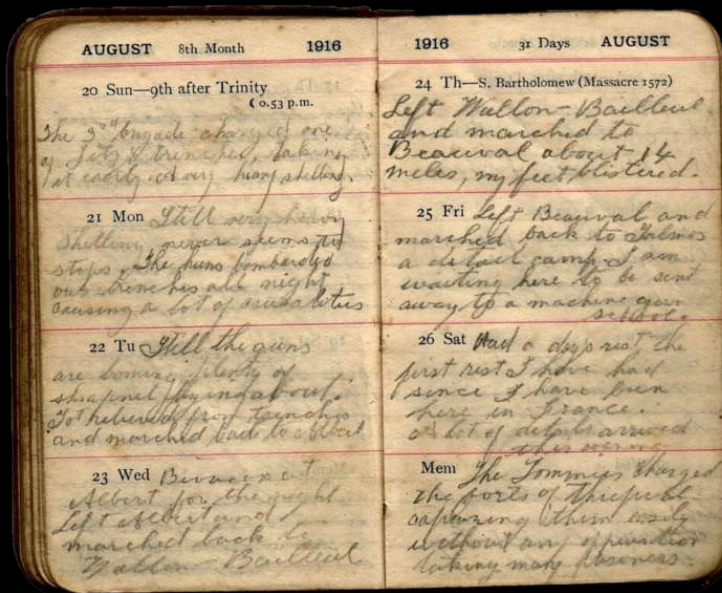 AUGUST 8th Month 1916
20 Sun—9th after Trinity
☾ 0.53 p.m.
The 3rd brigade charged one
of Fritz's trenches, taking
it easily. very heavy shelling.
21 Mon Still very heavy
shelling never seems to
stop. The huns bombarded
our trenches all night
causing a lot of
22 Tu Still the guns
are booming plenty of
shrapnel flying about.
Got relieved from trenches
and marched back to
23 Wed Bivouac at
Albert for the night
Left Albert and
marched back to
Wallon-Bailleul
1916 31 Days AUGUST
24 Th—S. Bartholomew (Massacre 1572)
Left Wallon-Bailleul
and marched to
Beauval about 14
miles, my feet blistered.
25 Fri Left Beauval and
marched back to
a detail camp. I am
waiting here to be sent
away to a machine gun
school.
26 Sat Had a days rest the
first rest I have had
since I have been
here in France.
a lot of details arrived
this
Mem The Tommies charged
the forts of
capturing them easily
without any opposition
taking many prisoners.